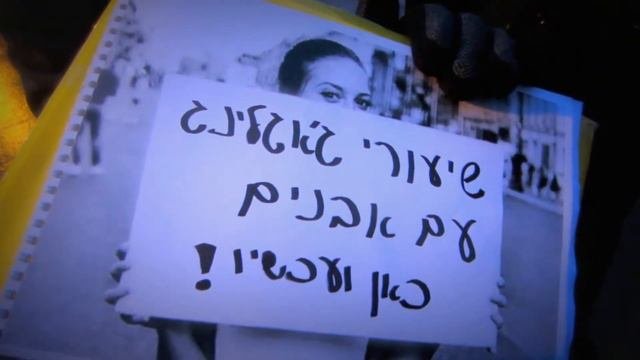 שיעורי ג'אגלינג
עם אבנים
כאן ועכשיו!